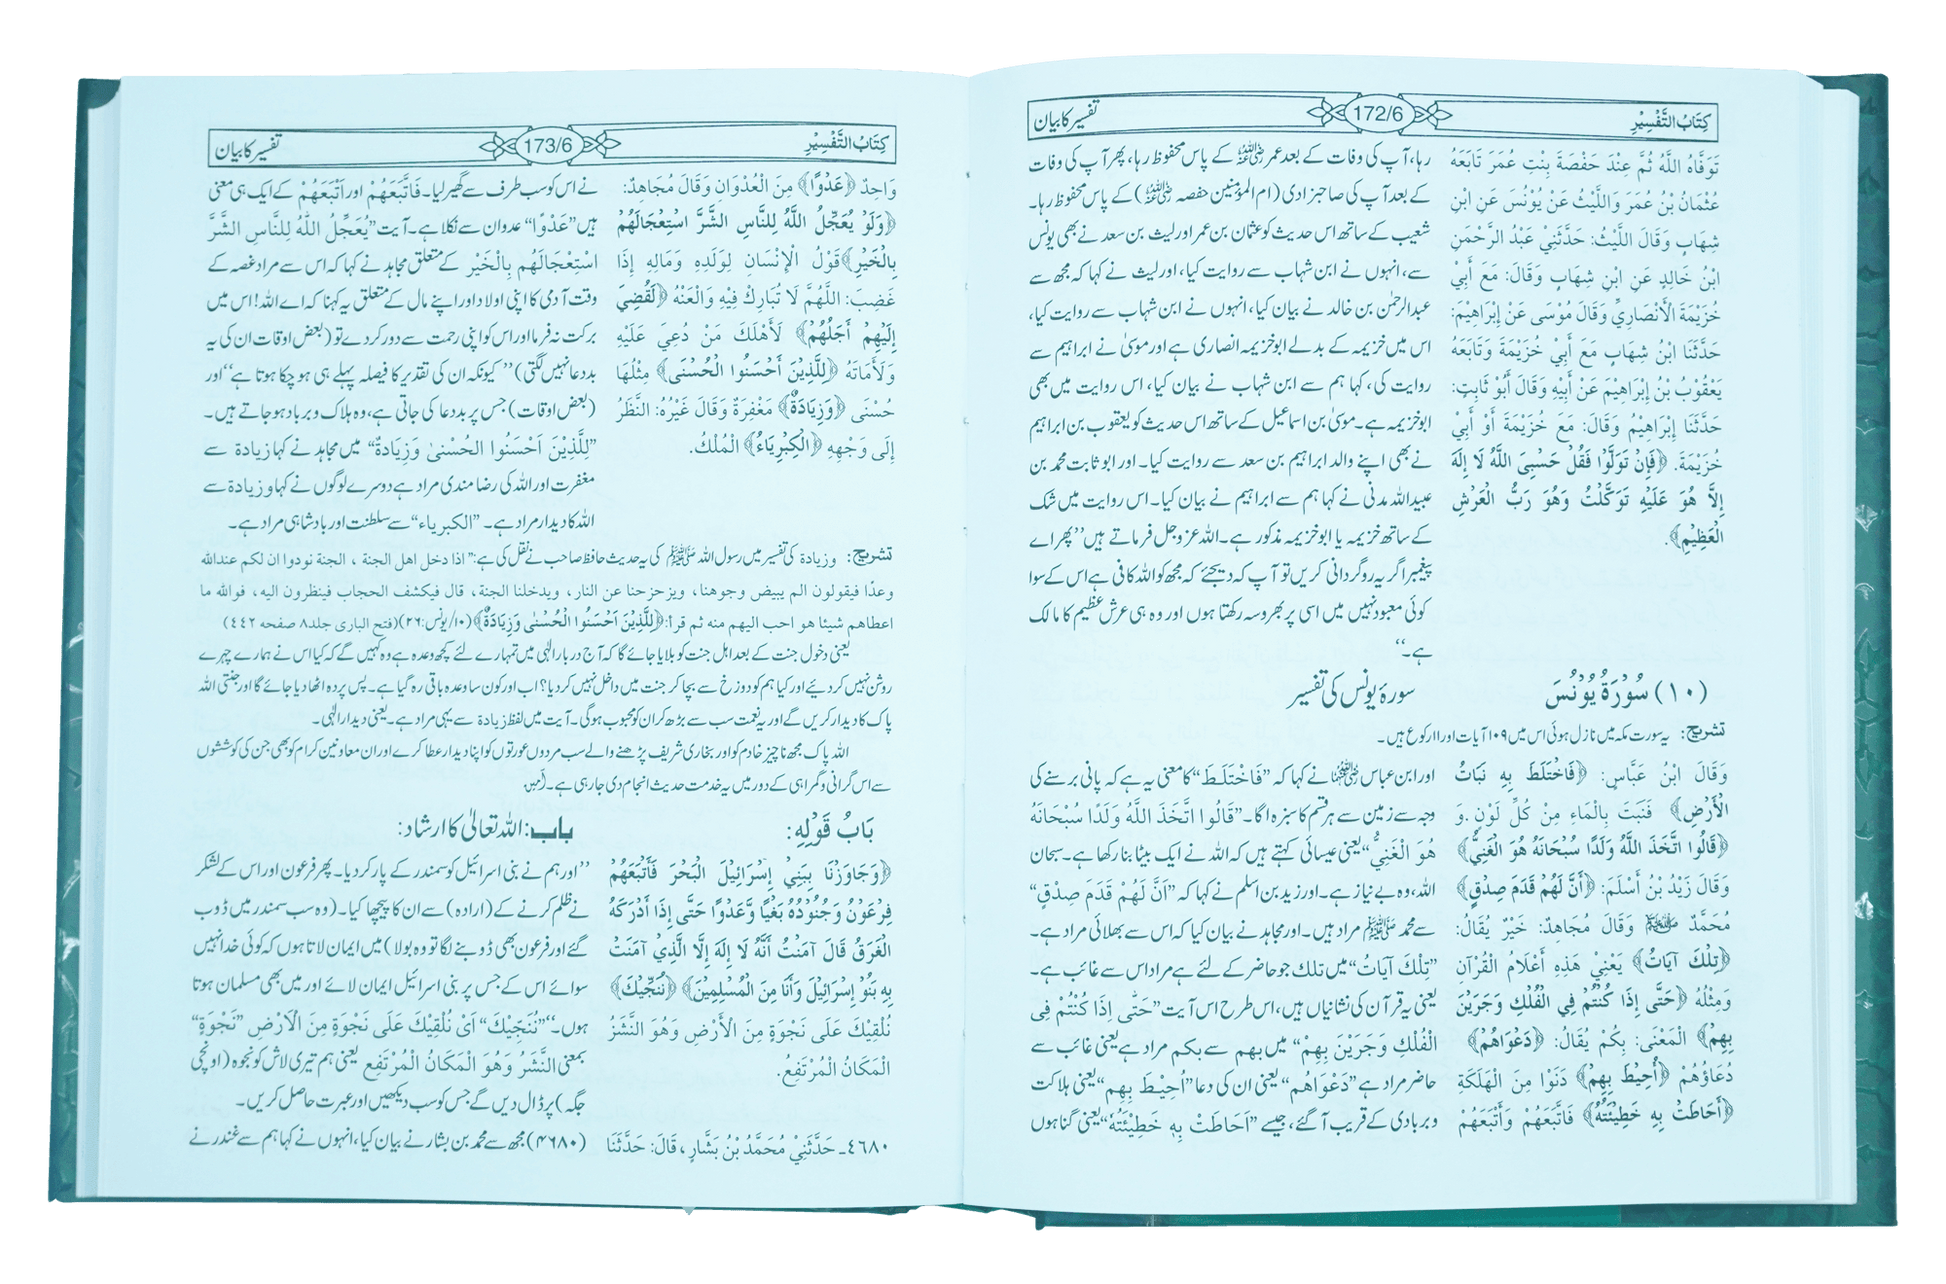 كِتَابُ التَّفْسِيْرِ 172/6 تفسیر کا بیان
تَوَفَّاهُ اللَّهُ ثُمَّ عِنْدَ حَفْصَةَ بِنْتِ عُمَرَ تَابَعَهُ
عُثْمَانُ بْنُ عُمَرَ وَاللَّيْثُ عَنْ يُوْنُسَ عَنِ ابْنِ
شِهَابٍ وَقَالَ اللَّيْثُ: حَدَّثَنِيْ عَبْدُ الرَّحْمَنِ
ابْنُ خَالِدٍ عَنِ ابْنِ شِهَابٍ وَقَالَ: مَعَ أَبِيْ
خُزَيْمَةَ الْأَنْصَارِيِّ وَقَالَ مُوْسَى عَنْ إِبْرَاهِيْمَ:
حَدَّثَنَا ابْنُ شِهَابٍ مَعَ أَبِيْ خُزَيْمَةَ وَتَابَعَهُ
يَعْقُوْبُ بْنُ إِبْرَاهِيْمَ عَنْ أَبِيْهِ وَقَالَ أَبُوْ ثَابِتٍ:
حَدَّثَنَا إِبْرَاهِيْمُ وَقَالَ: مَعَ خُزَيْمَةَ أَوْ أَبِيْ
خُزَيْمَةَ. ﴿فَإِنْ تَوَلَّوْا فَقُلْ حَسْبِيَ اللَّهُ لَا إِلَهَ
إِلَّا هُوَ عَلَيْهِ تَوَكَّلْتُ وَهُوَ رَبُّ الْعَرْشِ
الْعَظِيْمِ﴾.
رہا، آپ کی وفات کے بعد عمر رضی اللہ عنہ کے پاس محفوظ رہا، پھر آپ کی وفات
کے بعد آپ کی صاحبزادی (ام المؤمنین حفصہ رضی اللہ عنہا) کے پاس محفوظ رہا۔
شعیب کے ساتھ اس حدیث کو عثمان بن عمر اور لیث بن سعد نے بھی یونس
سے، انہوں نے ابن شہاب سے روایت کیا، اور لیث نے کہا کہ مجھ سے
عبدالرحمٰن بن خالد نے بیان کیا، انہوں نے ابن شہاب سے روایت کیا،
اس میں خزیمہ کے بدلے ابوخزیمہ انصاری ہے اور موسیٰ نے ابراہیم سے
روایت کی، کہا ہم سے ابن شہاب نے بیان کیا، اس روایت میں بھی
ابوخزیمہ ہے۔ موسیٰ بن اسماعیل کے ساتھ اس حدیث کو یعقوب بن ابراہیم
نے بھی اپنے والد ابراہیم بن سعد سے روایت کیا۔ اور ابو ثابت محمد بن
عبیداللہ مدنی نے کہا ہم سے ابراہیم نے بیان کیا۔ اس روایت میں شک
کے ساتھ خزیمہ یا ابوخزیمہ مذکور ہے۔ اللہ عزوجل فرماتے ہیں ’’پھر اے
پیغمبر! اگر یہ روگردانی کریں تو آپ کہہ دیجئے کہ مجھ کو اللہ کافی ہے اس کے سوا
کوئی معبود نہیں میں اسی پر بھروسہ رکھتا ہوں اور وہ ہی عرش عظیم کا مالک
ہے۔‘‘
(۱۰) سُوْرَةُ يُوْنُسَ سورۂ یونس کی تفسیر
تشریح: یہ سورت مکہ میں نازل ہوئی اس میں ۱۰۹ آیات اور ۱۱ رکوع ہیں۔
وَقَالَ ابْنُ عَبَّاسٍ: ﴿فَاخْتَلَطَ بِهِ نَبَاتُ
الْأَرْضِ﴾ فَنَبَتَ بِالْمَاءِ مِنْ كُلِّ لَوْنٍ. وَ
﴿قَالُوا اتَّخَذَ اللَّهُ وَلَدًا سُبْحَانَهُ هُوَ الْغَنِيُّ﴾
وَقَالَ زَيْدُ بْنُ أَسْلَمَ: ﴿أَنَّ لَهُمْ قَدَمَ صِدْقٍ﴾
مُحَمَّدٌ ﷺ وَقَالَ مُجَاهِدٌ: خَيْرٌ يُقَالُ:
﴿تِلْكَ آيَاتُ﴾ يَعْنِيْ هَذِهِ أَعْلَامُ الْقُرْآنِ
وَمِثْلُهُ ﴿حَتَّى إِذَا كُنْتُمْ فِي الْفُلْكِ وَجَرَيْنَ
بِهِمْ﴾ الْمَعْنَى: بِكُمْ يُقَالُ: ﴿دَعْوَاهُمْ﴾
دُعَاؤُهُمْ ﴿أُحِيْطَ بِهِمْ﴾ دَنَوْا مِنَ الْهَلَكَةِ
﴿أَحَاطَتْ بِهِ خَطِيْئَتُهُ﴾ فَاتَّبَعَهُمْ وَأَتْبَعَهُمْ
اور ابن عباس رضی اللہ عنہما نے کہا کہ ”فَاخْتَلَطَ“ کا معنی یہ ہے کہ پانی برسنے کی
وجہ سے زمین سے ہر قسم کا سبزہ اگا۔ ”قَالُوا اتَّخَذَ اللَّهُ وَلَدًا سُبْحَانَهُ
هُوَ الْغَنِيُّ“ یعنی عیسائی کہتے ہیں کہ اللہ نے ایک بیٹا بنا رکھا ہے۔ سبحان
اللہ، وہ بے نیاز ہے۔ اور زید بن اسلم نے کہا کہ ”اَنَّ لَهُمْ قَدَمَ صِدْقٍ“
سے محمد ﷺ مراد ہیں۔ اور مجاہد نے بیان کیا کہ اس سے بھلائی مراد ہے۔
”تِلْكَ آيَاتُ“ میں تلک جو حاضر کے لئے ہے مراد اس سے غائب ہے۔
یعنی یہ قرآن کی نشانیاں ہیں، اس طرح اس آیت ”حَتّٰى اِذَا كُنْتُمْ فِى
الْفُلْكِ وَجَرَيْنَ بِهِمْ“ میں بھم سے بکم مراد ہے یعنی غائب سے
حاضر مراد ہے ”دَعْوَاهُم“ یعنی ان کی دعا ”اُحِيْطَ بِهِم“ یعنی ہلاکت
و بربادی کے قریب آ گئے، جیسے ”اَحَاطَتْ بِهٖ خَطِيْئَتُهٗ“ یعنی گناہوں
كِتَابُ التَّفْسِيْرِ 173/6 تفسیر کا بیان
وَاحِدٌ ﴿عَدْوًا﴾ مِنَ الْعُدْوَانِ وَقَالَ مُجَاهِدٌ:
﴿وَلَوْ يُعَجِّلُ اللَّهُ لِلنَّاسِ الشَّرَّ اسْتِعْجَالَهُمْ
بِالْخَيْرِ﴾ قَوْلُ الْإِنْسَانِ لِوَلَدِهِ وَمَالِهِ إِذَا
غَضِبَ: اللَّهُمَّ لَا تُبَارِكْ فِيْهِ وَالْعَنْهُ ﴿لَقُضِيَ
إِلَيْهِمْ أَجَلُهُمْ﴾ لَأَهْلَكَ مَنْ دُعِيَ عَلَيْهِ
وَلَأَمَاتَهُ ﴿لِلَّذِيْنَ أَحْسَنُوا الْحُسْنَى﴾ مِثْلُهَا
حُسْنَى ﴿وَزِيَادَةٌ﴾ مَغْفِرَةٌ وَقَالَ غَيْرُهُ: النَّظَرُ
إِلَى وَجْهِهِ ﴿الْكِبْرِيَاءُ﴾ الْمُلْكُ.
نے اس کو سب طرف سے گھیر لیا۔ فَاتَّبَعَهُمْ اور اَتْبَعَهُمْ کے ایک ہی معنی
ہیں ”عَدْوًا“ عدوان سے نکلا ہے۔ آیت ”يُعَجِّلُ اللّٰهُ لِلنَّاسِ الشَّرَّ
اسْتِعْجَالَهُم بِالْخَيْر کے متعلق مجاہد نے کہا کہ اس سے مراد غصہ کے
وقت آدمی کا اپنی اولاد اور اپنے مال کے متعلق یہ کہنا کہ اے اللہ! اس میں
برکت نہ فرما اور اس کو اپنی رحمت سے دور کر دے تو (بعض اوقات ان کی یہ
بددعا نہیں لگتی)’’ کیونکہ ان کی تقدیر کا فیصلہ پہلے ہی ہو چکا ہوتا ہے‘‘ اور
(بعض اوقات) جس پر بددعا کی جاتی ہے، وہ ہلاک و برباد ہو جاتے ہیں۔
”لِلَّذِيْنَ اَحْسَنُوا الحُسْنىٰ وَزِيَادَةٌ“ میں مجاہد نے کہا زیادۃ سے
مغفرت اور اللہ کی رضا مندی مراد ہے دوسرے لوگوں نے کہا وزیادۃ سے
اللہ کا دیدار مراد ہے۔ ”الکبریاء“ سے سلطنت اور بادشاہی مراد ہے۔
تشریح: وزیادۃ کی تفسیر میں رسول اللہ ﷺ کی یہ حدیث حافظ صاحب نے نقل کی ہے:”اذا دخل اهل الجنة ، الجنة نودوا ان لكم عندالله
وعدًا فيقولون الم يبيض وجوهنا، ويزحزحنا عن النار، ويدخلنا الجنة، قال فيكشف الحجاب فينظرون اليه، فوالله ما
اعطاهم شيئا هو احب اليهم منه ثم قرأ: ﴿لِلَّذِيْنَ اَحْسَنُوا الْحُسْنٰى وَزِيَادَةٌ﴾ (۱۰/یونس:۲۶)(فتح الباری جلد۸ صفحه ٤٤٢)
یعنی دخول جنت کے بعد اہل جنت کو بلایا جائے گا کہ آج دربار الٰہی میں تمہارے لئے کچھ وعدہ ہے وہ کہیں گے کہ کیا اس نے ہمارے چہرے
روشن نہیں کر دیئے اور کیا ہم کو دوزخ سے بچا کر جنت میں داخل نہیں کر دیا؟ اب اور کون سا وعدہ باقی رہ گیا ہے۔ پس پردہ اٹھا دیا جائے گا اور جنتی اللہ
پاک کا دیدار کریں گے اور یہ نعمت سب سے بڑھ کر ان کو محبوب ہوگی۔ آیت میں لفظ زیادۃ سے یہی مراد ہے۔ یعنی دیدار الٰہی۔
اللہ پاک مجھ ناچیز خادم کو اور بخاری شریف پڑھنے والے سب مردوں عورتوں کو اپنا دیدار عطا کرے اور ان معاونین کرام کو بھی جن کی کوششوں
سے اس گرانی و گمراہی کے دور میں یہ خدمت حدیث انجام دی جا رہی ہے۔ (آمین)
بَابُ قَوْلِهِ: باب: اللہ تعالیٰ کا ارشاد:
﴿وَجَاوَزْنَا بِبَنِيْ إِسْرَائِيْلَ الْبَحْرَ فَأَتْبَعَهُمْ
فِرْعَوْنُ وَجُنُوْدُهُ بَغْيًا وَّعَدْوًا حَتَّى إِذَا أَدْرَكَهُ
الْغَرَقُ قَالَ آمَنْتُ أَنَّهُ لَا إِلَهَ إِلَّا الَّذِيْ آمَنَتْ
بِهِ بَنُوْ إِسْرَائِيْلَ وَأَنَا مِنَ الْمُسْلِمِيْنَ﴾ ﴿نُنَجِّيْكَ﴾
نُلْقِيْكَ عَلَى نَجْوَةٍ مِنَ الْأَرْضِ وَهُوَ النَّشَزُ
الْمَكَانُ الْمُرْتَفِعُ.
’’اور ہم نے بنی اسرائیل کو سمندر کے پار کر دیا۔ پھر فرعون اور اس کے لشکر
نے ظلم کرنے کے (ارادہ) سے ان کا پیچھا کیا۔ (وہ سب سمندر میں ڈوب
گئے اور فرعون بھی ڈوبنے لگا تو وہ بولا) میں ایمان لاتا ہوں کہ کوئی خدا نہیں
سوائے اس کے جس پر بنی اسرائیل ایمان لائے اور میں بھی مسلمان ہوتا
ہوں۔‘‘ ”نُنَجِّيْكَ“ اَیْ نُلْقِيْكَ عَلَى نَجْوَةٍ مِنَ الْاَرْضِ ”نَجْوَةٍ“
بمعنی النَّشَزُ وَهُوَ الْمَكَانُ الْمُرْتَفِع یعنی ہم تیری لاش کو نجوہ (اونچی
جگہ) پر ڈال دیں گے جس کو سب دیکھیں اور عبرت حاصل کریں۔
٤٦٨٠۔ حَدَّثَنِيْ مُحَمَّدُ بْنُ بَشَّارٍ، قَالَ: حَدَّثَنَا
(۴۶۸۰) مجھ سے محمد بن بشار نے بیان کیا، انہوں نے کہا ہم سے غندر نے